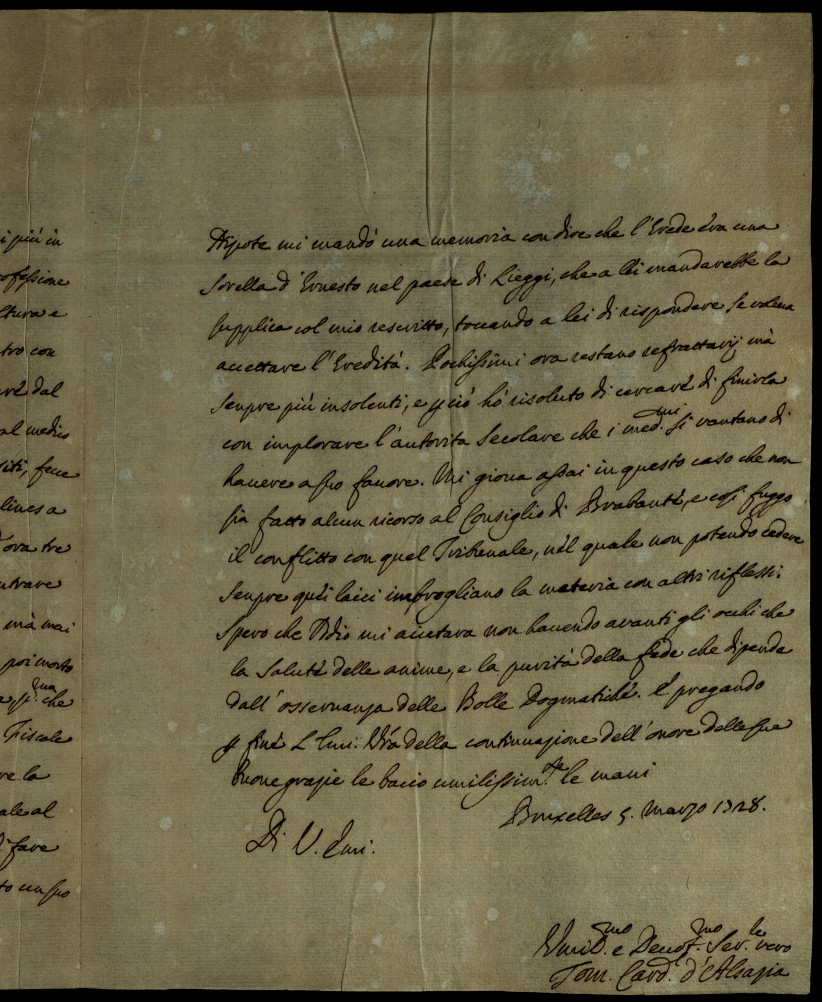 i più in
ofessione
ltura e
tro con
al medico
siti, fece
lines a
ora tre
ntrare
mà mai
poi morto
che
Fiscale
re la
ale al
di fare
to un suo
Nipote mi mandò una memoria con dire che l'Erede era una
Sorella d'Ernesto nel paese di Lieggi, che a lei mandarebbe la
supplica col mio rescritto, toccando a lei di rispondere se voleva
accettare l'Eredità. Pochissimi ora restano refrattarij mà
sempre più insolenti, e p ciò hò risoluto di cercare di finirla
con implorare l'autorita Secolare che i med.mi si vantano di
havere a suo favore. Mi giova assai in questo caso che non
sia fatto alcun ricorso al Consiglio di Brabante, e così fuggo
il conflitto con quel Tribunale, nel quale non potendo cedere
sempre quei laici imbrogliano la materia con altri riflessi.
Spero che Iddio mi aiutara non havendo avanti gli occhi che
la Salute delle anime, e la purità della fede che dipende
dall'osservanza delle Bolle Dogmatiche. E pregando
p fine L'Emi: V'ra della continuazione dell'onore delle sue
buone grazie le bacio umilissim.te le mani
Bruxelles 5. Marzo 1728.
Di V. Emi.
Umil.mo e Devot.mo Ser.le vero
Tom. Card. d'Alsazia